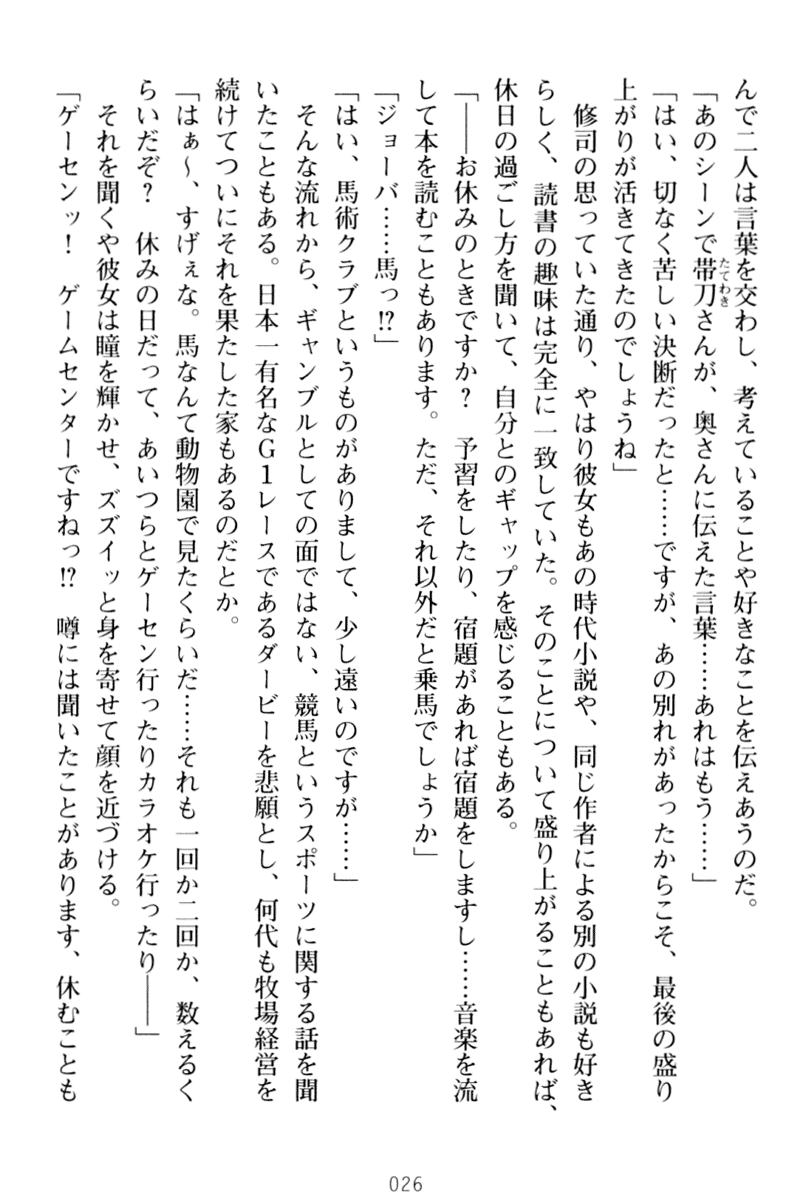 んで二人は言葉を交わし、考えていることや好きなことを伝えあうのだ。
「あのシーンで帯刀さんが、奥さんに伝えた言葉……あれはもう……」
たてわき
「はい、切なく苦しい決断だったと……ですが、あの別れがあったからこそ、最後の盛り
上がりが活きてきたのでしょうね」
　修司の思っていた通り、やはり彼女もあの時代小説や、同じ作者による別の小説も好き
らしく、読書の趣味は完全に一致していた。そのことについて盛り上がることもあれば、
休日の過ごし方を聞いて、自分とのギャップを感じることもある。
「――お休みのときですか？　予習をしたり、宿題があれば宿題をしますし……音楽を流
して本を読むこともあります。ただ、それ以外だと乗馬でしょうか」
「ジョーバ……馬っ!?」
「はい、馬術クラブというものがありまして、少し遠いのですが……」
　そんな流れから、ギャンブルとしての面ではない、競馬というスポーツに関する話を聞
いたこともある。日本一有名なＧ１レースであるダービーを悲願とし、何代も牧場経営を
続けてついにそれを果たした家もあるのだとか。
「はぁ～、すげぇな。馬なんて動物園で見たくらいだ……それも一回か二回か、数えるく
らいだぞ？　休みの日だって、あいつらとゲーセン行ったりカラオケ行ったり――」
　それを聞くや彼女は瞳を輝かせ、ズズイッと身を寄せて顔を近づける。
「ゲーセンッ！　ゲームセンターですねっ!?　噂には聞いたことがあります、休むことも
026